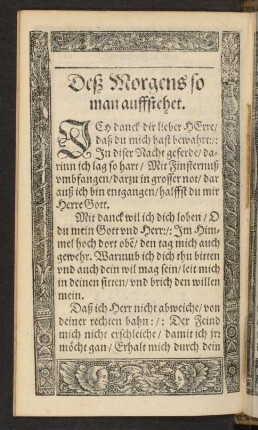 Deß Morgens so
man auffstehet.
ICh danck dir lieber HErre/
daß du mich hast bewahrt:/:
In diser Nacht geferde/ da-
rinn ich lag so hart/ Mit Finsternuß
vmbfangen/ darzu in grosser not/ dar
auß ich bin entgangen/ halffst du mir
Herre Gott.
Mit danck wil ich dich loben/ O
du mein Gott vnd Herr:/: Im Him-
mel hoch dort obẽ/ den tag mich auch
gewehr. Warumb ich dich thu bitten
vnd auch dein wil mag sein/ leit mich
in deinen sitten/ vnd brich den willen
mein.
Daß ich Herr nicht abweiche/ von
deiner rechten bahn:/: Der Feind
mich nicht erschleiche/ damit ich jr:
möcht gan/ Erhalt mich durch dein